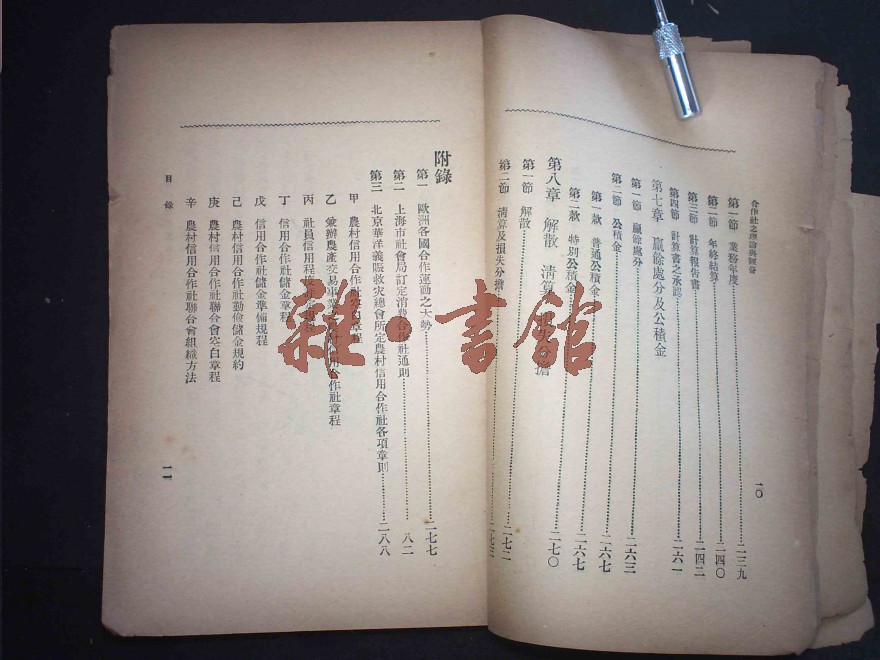 合作社之理論與經營
一〇
第一節 業務年度……二三九
第二節 年終結算……二四〇
第三節 計算報告書……二四二
第四節 計算書之承認……二六一
第七章 贏餘處分及公積金
第一節 贏餘處分……二六三
第二節 公積金……二六七
第一款 普通公積金……二六七
第二款 特別公積金……二六七
第八章 解散 清算 損失分擔……二七〇
第一節 解散……二七二
第二節 清算及損失分擔……二七三
附錄
第一 歐洲各國合作運動之大勢……二七七
第二 上海市社會局訂定消費合作社通則……八二
第三 北京華洋義賑救災總會所定農村信用合作社各項章則……二八八
甲 農村信用合作社空白章程
乙 兼辦農產交易事業之 信用合作社章程
丙 社員信用程度
丁 信用合作社儲金章程
戊 信用合作社儲金準備規程
己 農村信用合作社勤儉儲金規約
庚 農村信用合作社聯合會空白章程
辛 農村信用合作社聯合會組織方法
目錄
一一
雜·書館